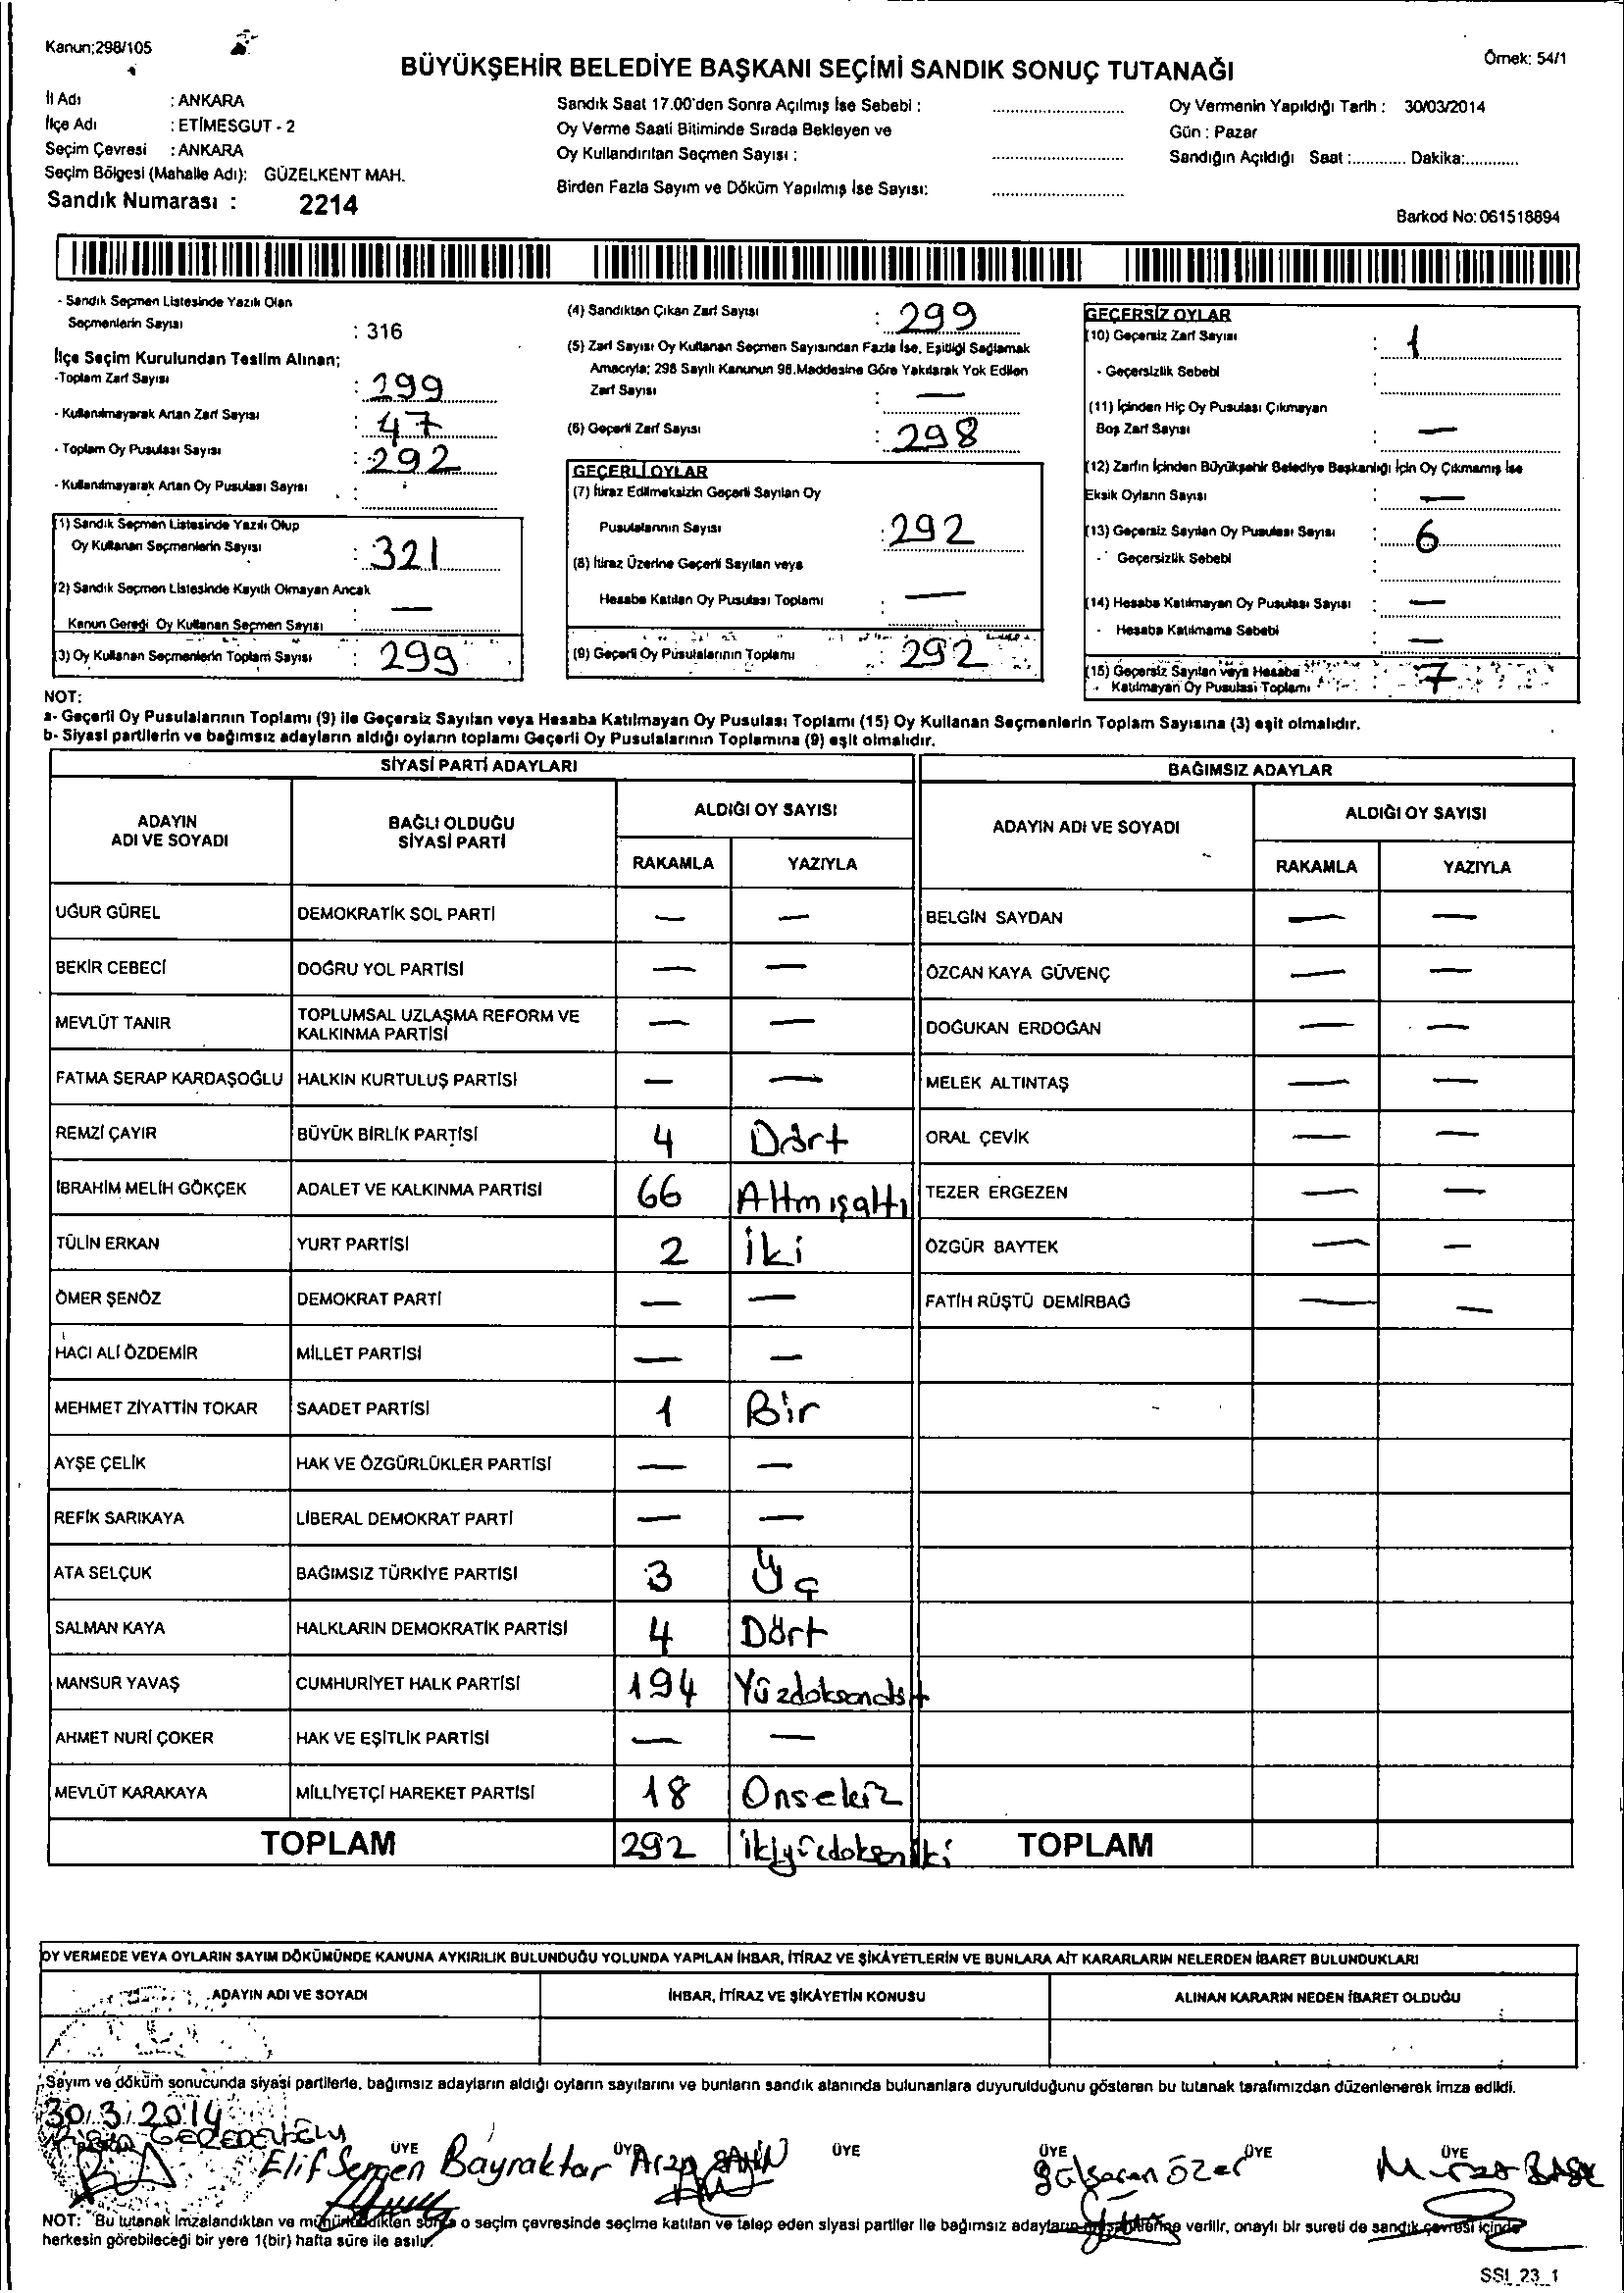 Kanun;298/105
Örnek: 54/1
BÜYÜKŞEHİR BELEDİYE BAŞKANI SEÇİMİ SANDIK SONUÇ TUTANAĞI
İl Adı : ANKARA
İlçe Adı : ETİMESGUT - 2
Seçim Çevresi : ANKARA
Seçim Bölgesi (Mahalle Adı): GÜZELKENT MAH.
Sandık Numarası : 2214
Sandık Saat 17.00'den Sonra Açılmış İse Sebebi :
Oy Verme Saati Bitiminde Sırada Bekleyen ve
Oy Kullandırılan Seçmen Sayısı :
Birden Fazla Sayım ve Döküm Yapılmış İse Sayısı:
Oy Vermenin Yapıldığı Tarih : 30/03/2014
Gün : Pazar
Sandığın Açıldığı Saat :............ Dakika:............
Barkod No: 061518894
- Sandık Seçmen Listesinde Yazılı Olan
Seçmenlerin Sayısı : 316
İlçe Seçim Kurulundan Teslim Alınan;
-Toplam Zarf Sayısı : 299
- Kullanılmayarak Artan Zarf Sayısı : 47
- Toplam Oy Pusulası Sayısı : 292
- Kullanılmayarak Artan Oy Pusulası Sayısı :
(1) Sandık Seçmen Listesinde Yazılı Olup
Oy Kullanan Seçmenlerin Sayısı : 321
(2) Sandık Seçmen Listesinde Kayıtlı Olmayan Ancak
Kanun Gereği Oy Kullanan Seçmen Sayısı : —
(3) Oy Kullanan Seçmenlerin Toplam Sayısı : 299
(4) Sandıktan Çıkan Zarf Sayısı : 299
(5) Zarf Sayısı Oy Kullanan Seçmen Sayısından Fazla İse, Eşitliği Sağlamak
Amacıyla; 298 Sayılı Kanunun 98.Maddesine Göre Yakılarak Yok Edilen
Zarf Sayısı : —
(6) Geçerli Zarf Sayısı : 298
GEÇERLİ OYLAR
(7) İtiraz Edilmeksizin Geçerli Sayılan Oy
Pusulalarının Sayısı : 292
(8) İtiraz Üzerine Geçerli Sayılan veya
Hesaba Katılan Oy Pusulası Toplamı : —
(9) Geçerli Oy Pusulalarının Toplamı : 292
GEÇERSİZ OYLAR
(10) Geçersiz Zarf Sayısı : 1
- Geçersizlik Sebebi :
(11) İçinden Hiç Oy Pusulası Çıkmayan
Boş Zarf Sayısı : —
(12) Zarfın İçinden Büyükşehir Belediye Başkanlığı İçin Oy Çıkmamış İse
Eksik Oyların Sayısı : —
(13) Geçersiz Sayılan Oy Pusulası Sayısı : 6
- Geçersizlik Sebebi :
(14) Hesaba Katılmayan Oy Pusulası Sayısı : —
- Hesaba Katılmama Sebebi : —
(15) Geçersiz Sayılan veya Hesaba
Katılmayan Oy Pusulası Toplamı : 7
NOT:
a- Geçerli Oy Pusulalarının Toplamı (9) ile Geçersiz Sayılan veya Hesaba Katılmayan Oy Pusulası Toplamı (15) Oy Kullanan Seçmenlerin Toplam Sayısına (3) eşit olmalıdır.
b- Siyasi partilerin ve bağımsız adayların aldığı oyların toplamı Geçerli Oy Pusulalarının Toplamına (9) eşit olmalıdır.
SİYASİ PARTİ ADAYLARI
ADAYIN ADI VE SOYADI BAĞLI OLDUĞU SİYASİ PARTİ ALDIĞI OY SAYISI
RAKAMLA YAZIYLA
UĞUR GÜREL DEMOKRATİK SOL PARTİ — —
BEKİR CEBECİ DOĞRU YOL PARTİSİ — —
MEVLÜT TANIR TOPLUMSAL UZLAŞMA REFORM VE KALKINMA PARTİSİ — —
FATMA SERAP KARDAŞOĞLU HALKIN KURTULUŞ PARTİSİ — —
REMZİ ÇAYIR BÜYÜK BİRLİK PARTİSİ 4 Dört
İBRAHİM MELİH GÖKÇEK ADALET VE KALKINMA PARTİSİ 66 Altmışaltı
TÜLİN ERKAN YURT PARTİSİ 2 İki
ÖMER ŞENÖZ DEMOKRAT PARTİ — —
HACI ALİ ÖZDEMİR MİLLET PARTİSİ — —
MEHMET ZİYATTİN TOKAR SAADET PARTİSİ 1 Bir
AYŞE ÇELİK HAK VE ÖZGÜRLÜKLER PARTİSİ — —
REFİK SARIKAYA LİBERAL DEMOKRAT PARTİ — —
ATA SELÇUK BAĞIMSIZ TÜRKİYE PARTİSİ 3 Üç
SALMAN KAYA HALKLARIN DEMOKRATİK PARTİSİ 4 Dört
MANSUR YAVAŞ CUMHURİYET HALK PARTİSİ 194 Yüzdoksandört
AHMET NURİ ÇOKER HAK VE EŞİTLİK PARTİSİ — —
MEVLÜT KARAKAYA MİLLİYETÇİ HAREKET PARTİSİ 18 Onsekiz
TOPLAM 292 ikiyüzdoksaniki
BAĞIMSIZ ADAYLAR
ADAYIN ADI VE SOYADI ALDIĞI OY SAYISI
RAKAMLA YAZIYLA
BELGİN SAYDAN — —
ÖZCAN KAYA GÜVENÇ — —
DOĞUKAN ERDOĞAN — —
MELEK ALTINTAŞ — —
ORAL ÇEVİK — —
TEZER ERGEZEN — —
ÖZGÜR BAYTEK — —
FATİH RÜŞTÜ DEMİRBAĞ — —
TOPLAM
OY VERMEDE VEYA OYLARIN SAYIM DÖKÜMÜNDE KANUNA AYKIRILIK BULUNDUĞU YOLUNDA YAPILAN İHBAR, İTİRAZ VE ŞİKÂYETLERİN VE BUNLARA AİT KARARLARIN NELERDEN İBARET BULUNDUKLARI
ADAYIN ADI VE SOYADI İHBAR, İTİRAZ VE ŞİKÂYETİN KONUSU ALINAN KARARIN NEDEN İBARET OLDUĞU
Sayım ve döküm sonucunda siyasi partilerle, bağımsız adayların aldığı oyların sayılarını ve bunların sandık alanında bulunanlara duyurulduğunu gösteren bu tutanak tarafımızdan düzenlenerek imza edildi.
30/3/2014
ÜYE ÜYE ÜYE ÜYE ÜYE ÜYE
Elif Sergen Bayraktar Arzu ŞAHİN Gülseren Özer Murat
NOT: Bu tutanak imzalandıktan ve mühürlendikten sonra o seçim çevresinde seçime katılan ve talep eden siyasi partiler ile bağımsız adayların müşahitlerine verilir, onaylı bir sureti de sandık çevresi içinde
herkesin görebileceği bir yere 1(bir) hafta süre ile asılır.
SSI_23_1